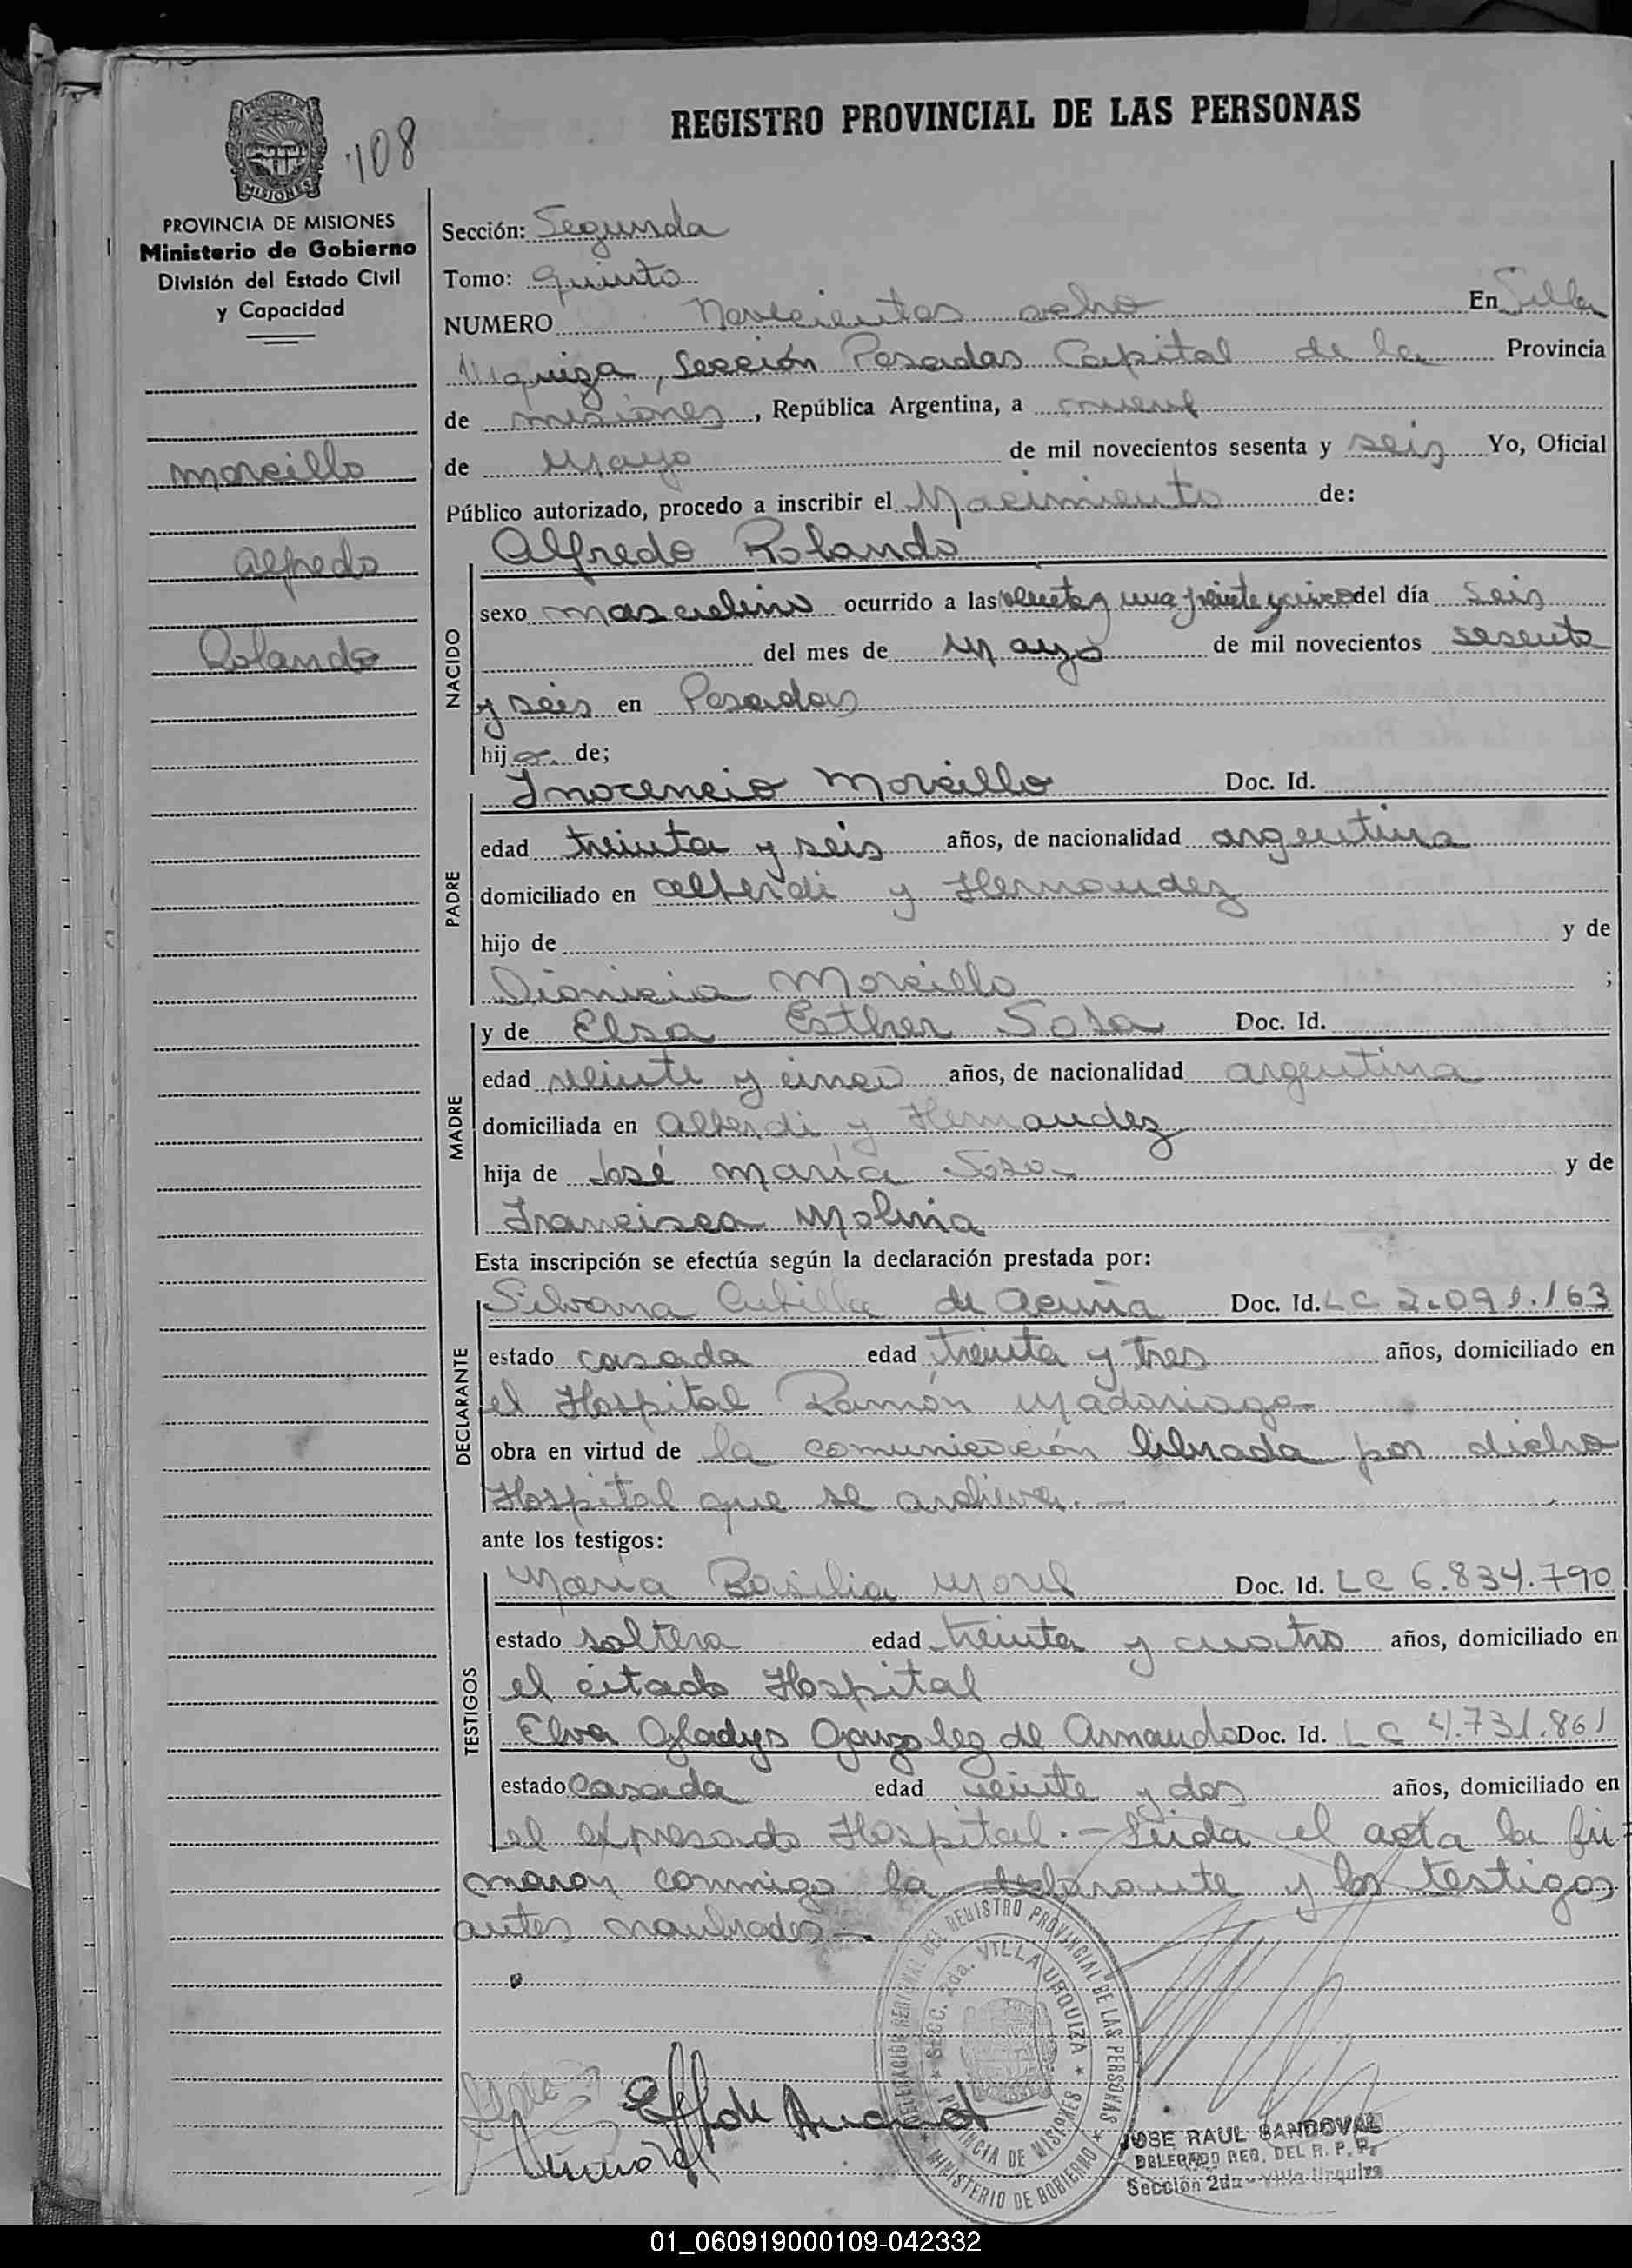 REGISTRO PROVINCIAL DE LAS PERSONAS
MISIONES
908
PROVINCIA DE MISIONES
Ministerio de Gobierno
División del Estado Civil
y Capacidad
Morcillo
Alfredo
Rolando
Sección: Segunda
Tomo: Quinto
NUMERO Novecientos ocho En Villa
Urquiza, Sección Posadas Capital de la Provincia
de Misiones, República Argentina, a nueve
de Mayo de mil novecientos sesenta y seis Yo, Oficial
Público autorizado, procedo a inscribir el Nacimiento de:
NACIDO
Alfredo Rolando
sexo masculino ocurrido a las veinte y una treinta y cinco del día seis
del mes de Mayo de mil novecientos sesenta
y seis en Posadas
hijo de;
PADRE
Inocencio Morcillo Doc. Id.
edad treinta y seis años, de nacionalidad argentina
domiciliado en Alberdi y Hernandez
hijo de y de
Dionicia Morcillo ;
MADRE
y de Elsa Esther Sosa Doc. Id.
edad veinte y cinco años, de nacionalidad argentina
domiciliada en Alberdi y Hernandez
hija de José María Sosa y de
Francisca Molina
Esta inscripción se efectúa según la declaración prestada por:
DECLARANTE
Silvana de Acuña Doc. Id. LC 2.091.163
estado casada edad treinta y tres años, domiciliado en
el Hospital Ramón Madariaga
obra en virtud de la comunicación librada por dicho
Hospital que se archiva.—
ante los testigos:
TESTIGOS
María Basilia Morel Doc. Id. LC 6.834.790
estado soltera edad treinta y cuatro años, domiciliado en
el citado Hospital
Elva Gladys Gonzalez de Armando Doc. Id. LC 4.731.861
estado Casada edad veinte y dos años, domiciliado en
el expresado Hospital.— Leida el acta la fir-
maron conmigo la declarante y los testigos
antes nombrados.—
DELEGACION REGIONAL DEL REGISTRO PROVINCIAL DE LAS PERSONAS
SECC. 2da. VILLA URQUIZA
PROVINCIA DE MISIONES
MINISTERIO DE GOBIERNO
JOSE RAUL SANDOVAL
DELEGADO REG. DEL R. P. P.
Sección 2da - Villa Urquiza
01_060919000109-042332